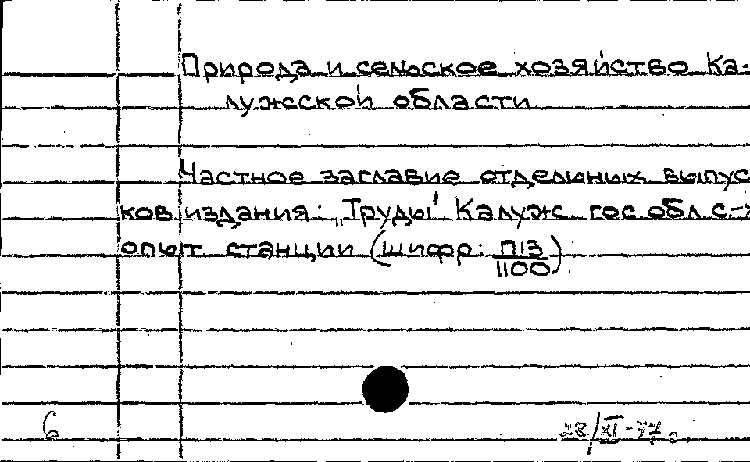 Природа и сельское хозяйство Ка-
лужской области
Частное заглавие отдельных выпус
ков издания: „Труды" Калуж. гос. обл. с-х
опыт. станции (шифр: П13/1100)
6
28/XI-77г.